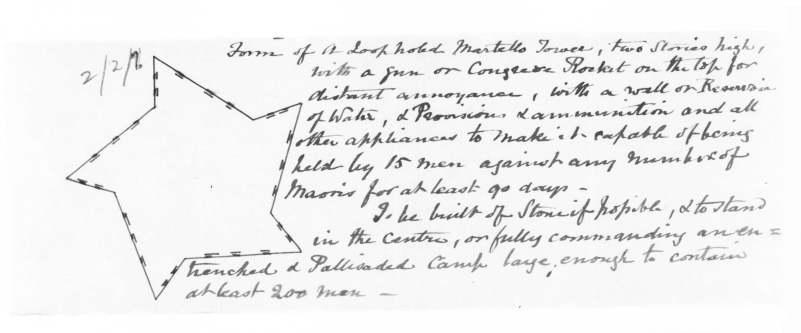 2/2/6
Form of a Loop holed Martello Tower, two Stories high,
with a gun or Congreve Rocket on the top for
distant annoyance, with a well or Reservoir
of Water, & Provisions & ammunition and all
other appliances to make it capable of being
held by 15 men against any number of
Maoris for at least 90 days -
To be built of Stone if possible, & to stand
in the centre, or fully commanding an en =
trenched & Pallisaded Camp large enough to contain
at least 200 men -